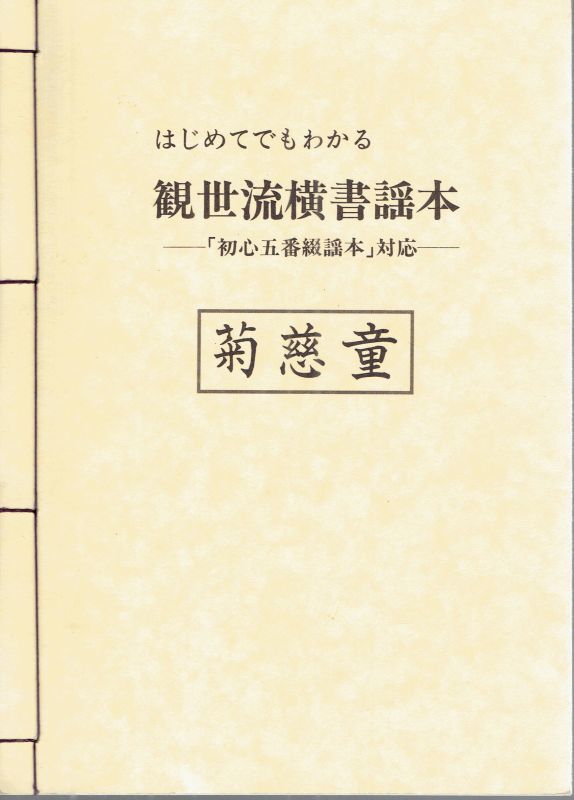 はじめてでもわかる
観世流横書謡本
──「初心五番綴謡本」対応──
菊慈童